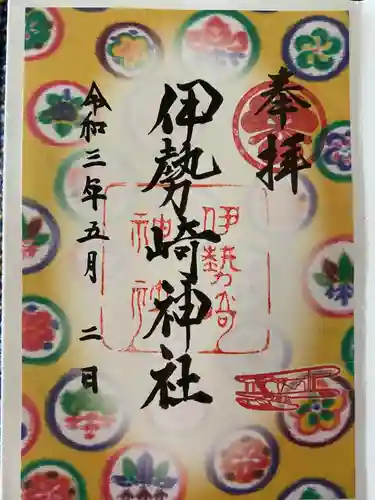 奉拝
伊勢崎神社
令和三年五月二日
伊勢崎
神社